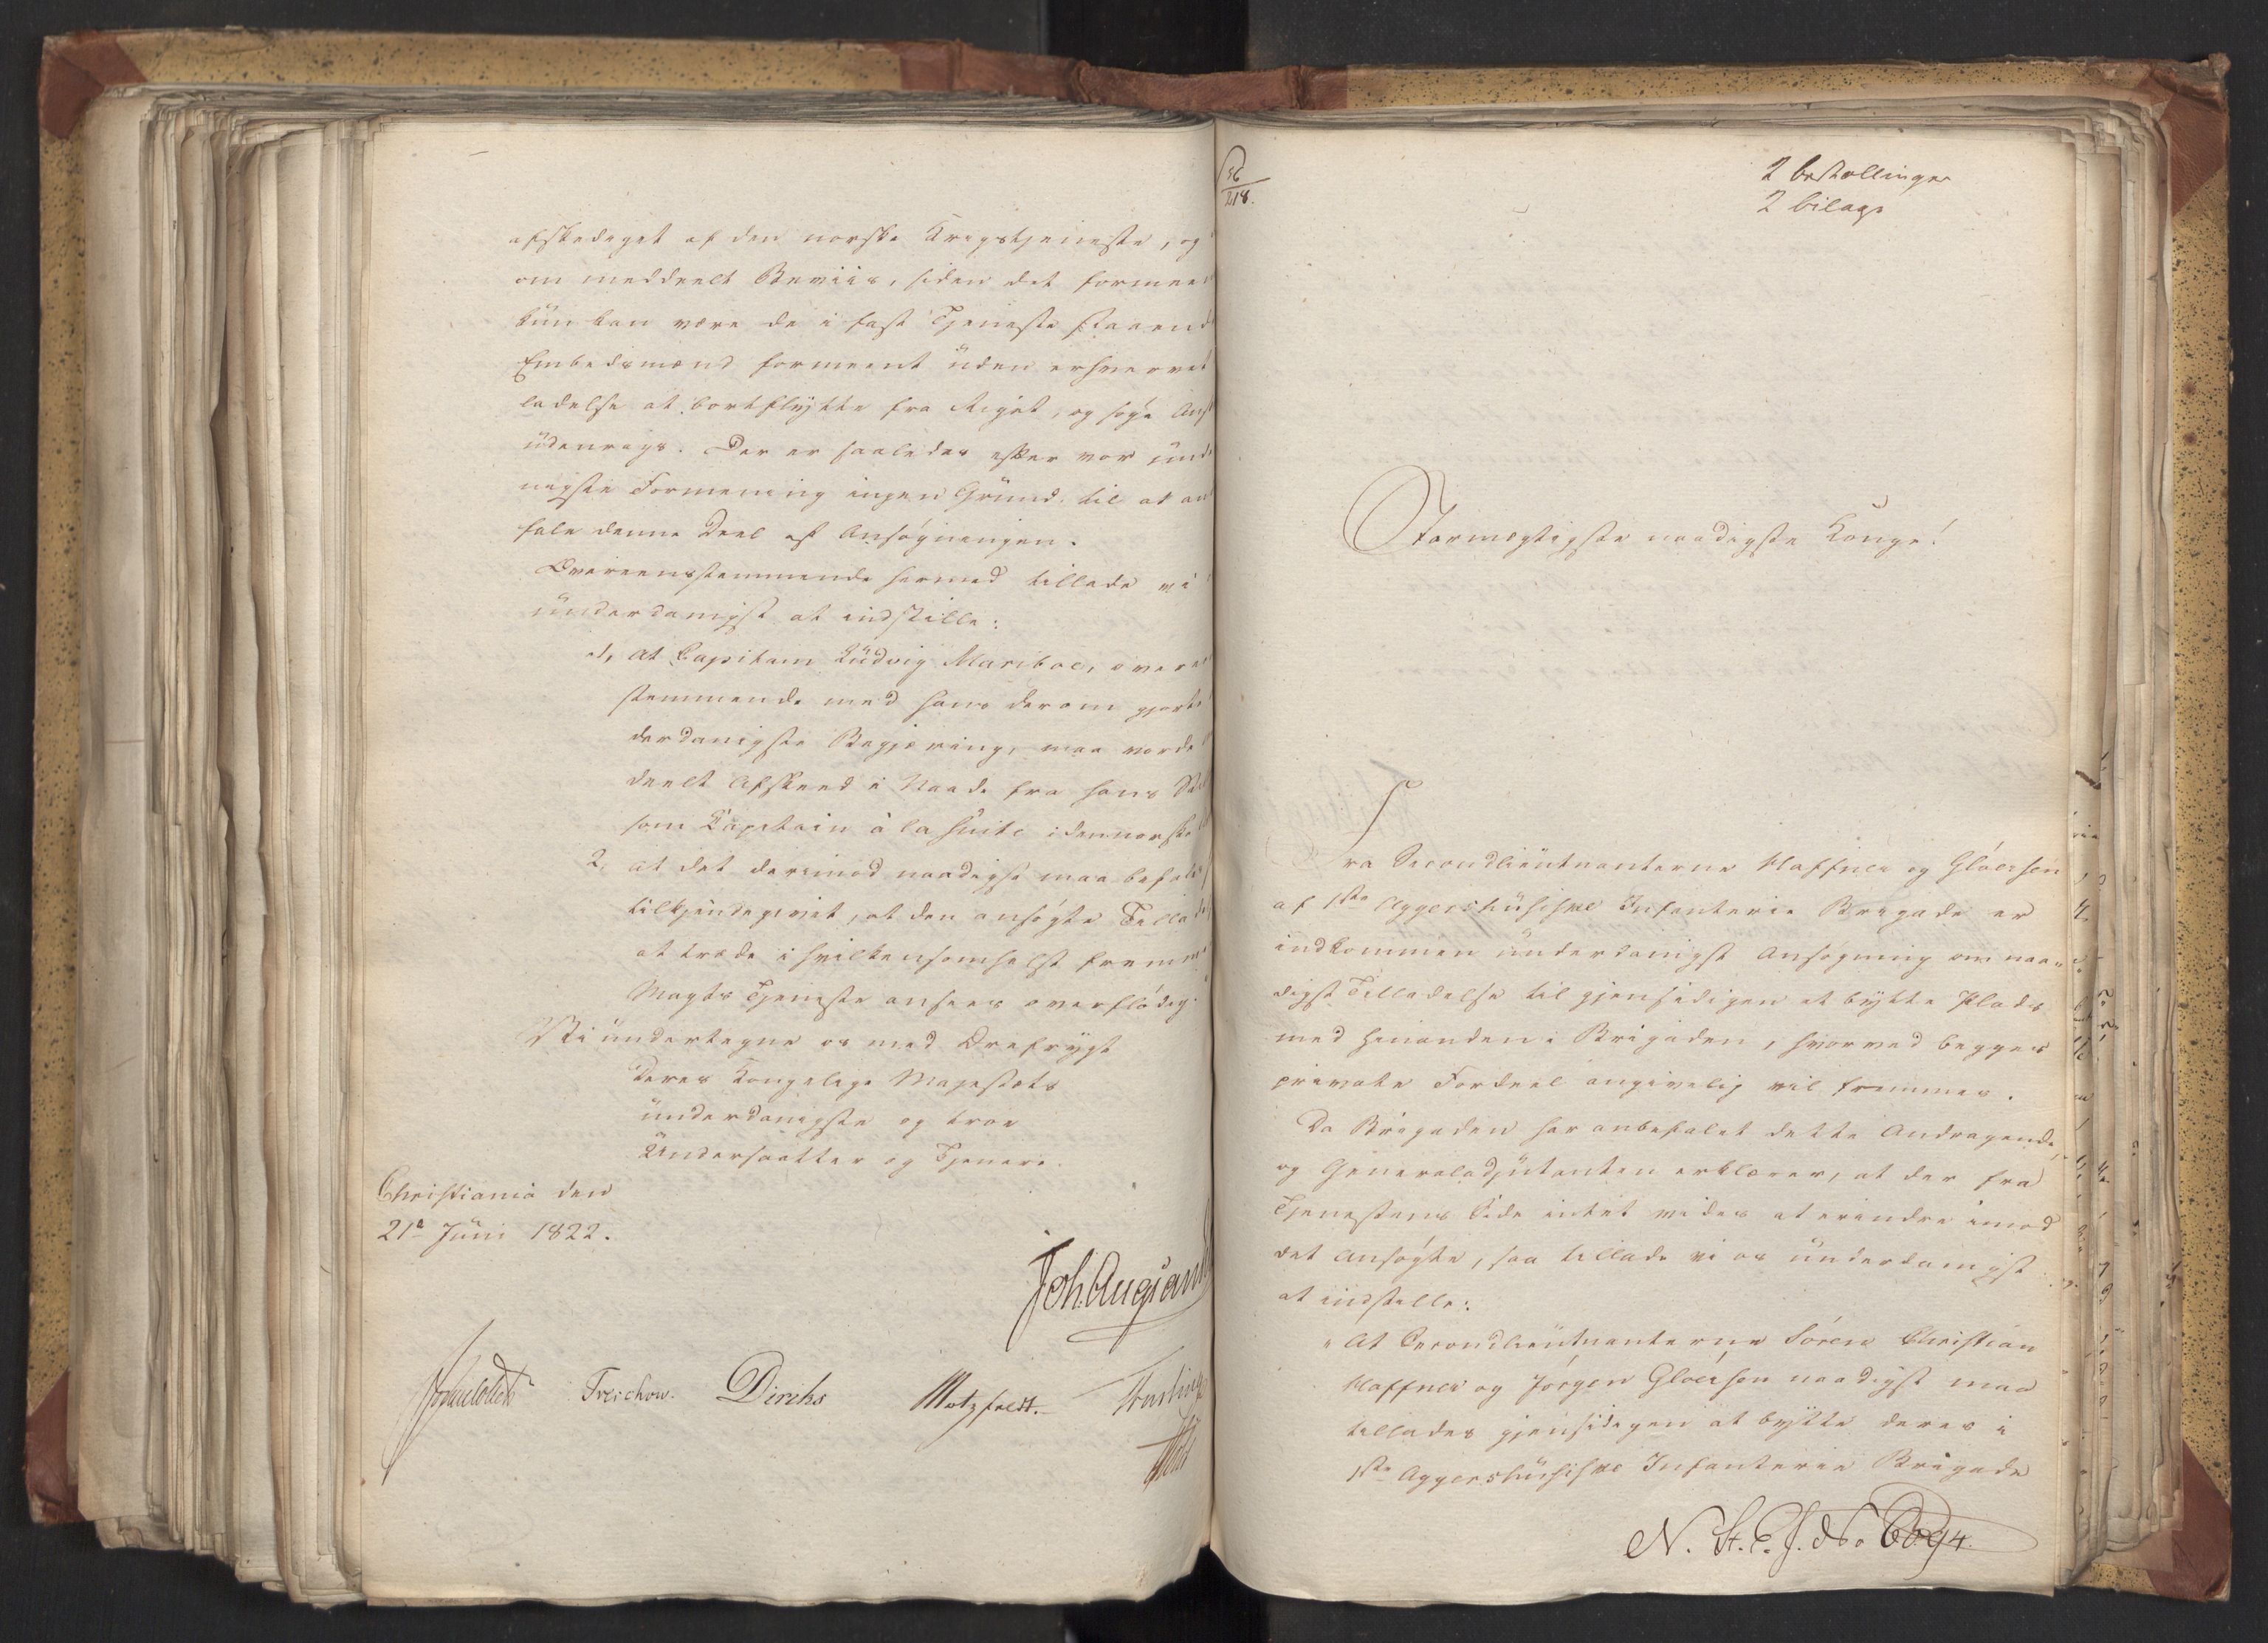 afskediget af den norske Krigstjeneste, og
om meddeelt Beviis, siden det formee
kün kan være de i fast Tjeneste staaend
Embedsmænd formeent üden erhvervet
ladelse at bortflytte fra Riget, og søge Ans
üdenrigs. Der er saaledes efter vor ünd
nigste Formening ingen Gründ til at an
fale denne Deel af Ansøgningen.
Overeensstemmende hermed tillade vi
ünderdanigst at indstille:
1, at Capitain Lüdvig Mariboe, overe
stemmende med hans derom gjorte
derdanigste Begjæring, maa vorde
deelt Afskeed i Naade fra hans
som Capitain à la Suite i den norske
2, at det derimod naadigst maa befale
tilkjendegivet, at den ansøgte Tilla
at træde i hvilkensomhelst fremm
Magts Tjeneste ansees overflødig.
Vi ündertegne os med Ærefrygt
Deres Kongelige Majestæts
ünderdanigste og troe
Undersaatter og Tjenere.
Christiania den
21de Jüni 1822.
Joh. Aug. Sand
Sommerhielm Treschow. Diriks Motzfeldt. Fasting
Holst
36/218.
2 bestallinger
2 bilage
Stormægtigste naadigste Konge!
Fra Secondlieütnanterne Haffner og Gløersen
af 1ste Aggershüsiske Infanterie Brigade er
indkommen ünderdanigst Ansøgning om naa-
digst Tilladelse til gjensidigen at bytte Plads
med hinanden i Brigaden, hvorved begges
private Fordeel angivelig vil fremmes.
Da Brigaden har anbefalet dette Andragende,
og Generaladjütanten erklærer, at der fra
Tjenestens Side intet vides at erindre imod
det Ansøgte, saa tillade vi os ünderdanigst
at indstille:
"At Secondlieütnanterne Søren Christian
Haffner og Jørgen Gløersen naadigst maa
tillades gjensidigen at bytte deres i
1ste Aggershüsiske Infanterie Brigade
N. St. E. J. No.